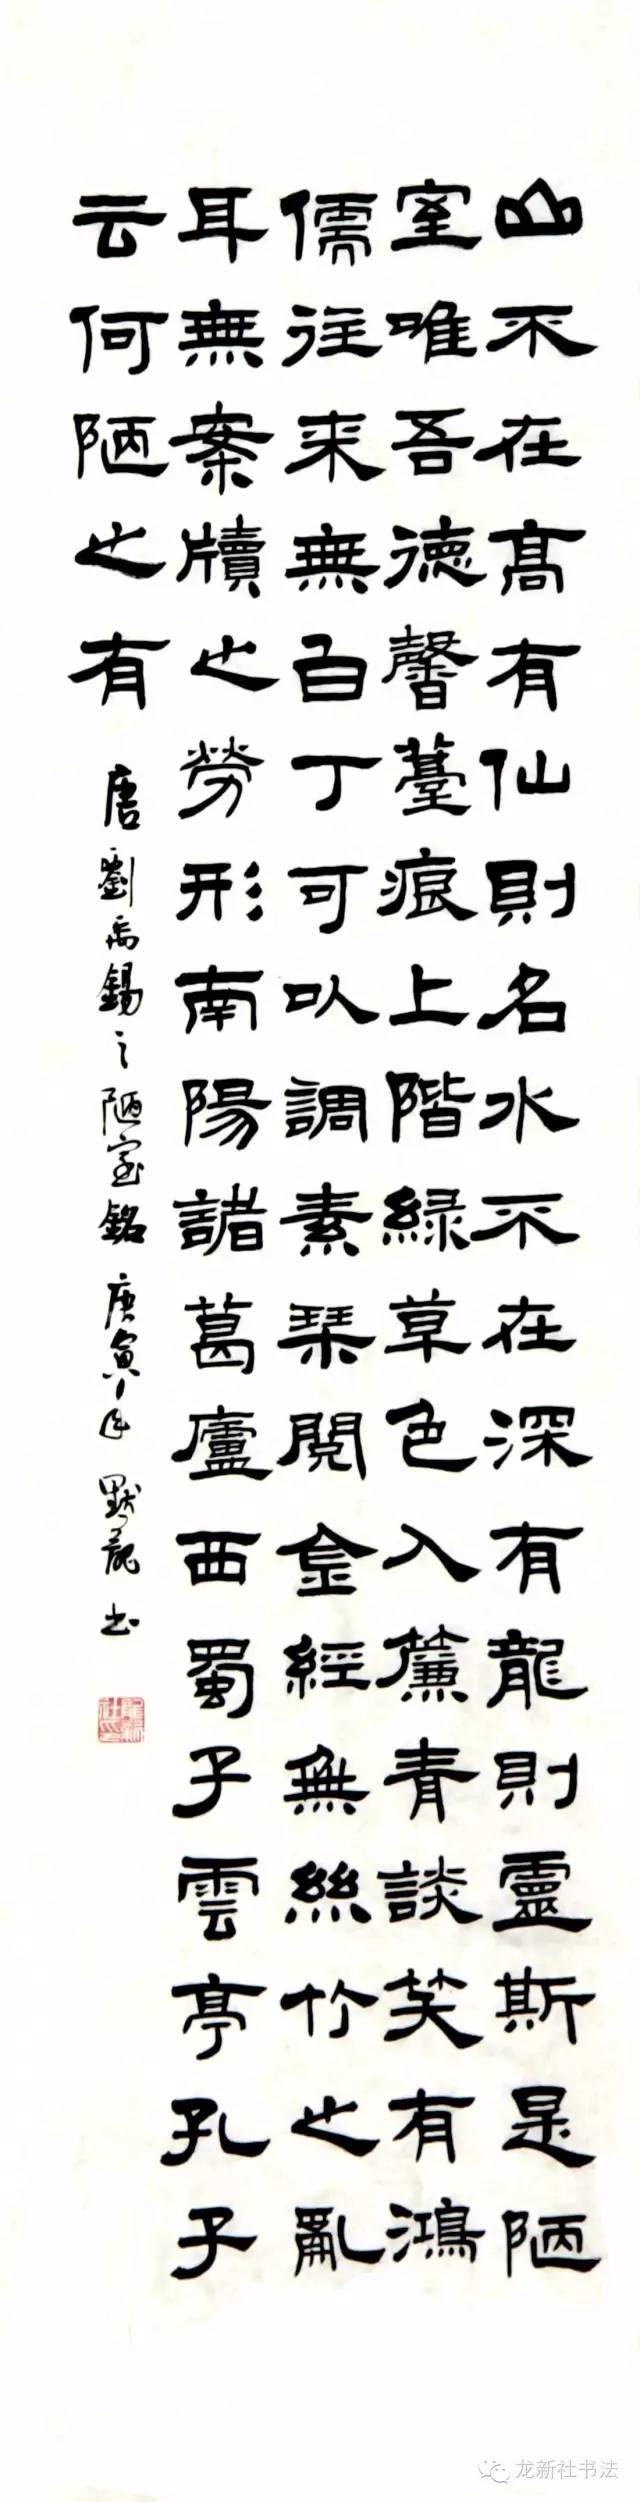 山不在髙有仙則名水不在深有龍則靈斯是陋
室唯吾德馨薹痕上階緑草色入簾青談笑有鴻
儒往来無白丁可以調素琹閱金經無絲竹之亂
耳無案牘之勞形南陽諸葛廬西蜀子雲亭孔子
云何陋之有
唐劉禹錫之陋室銘 庚寅年 默龍书
龙新社书法